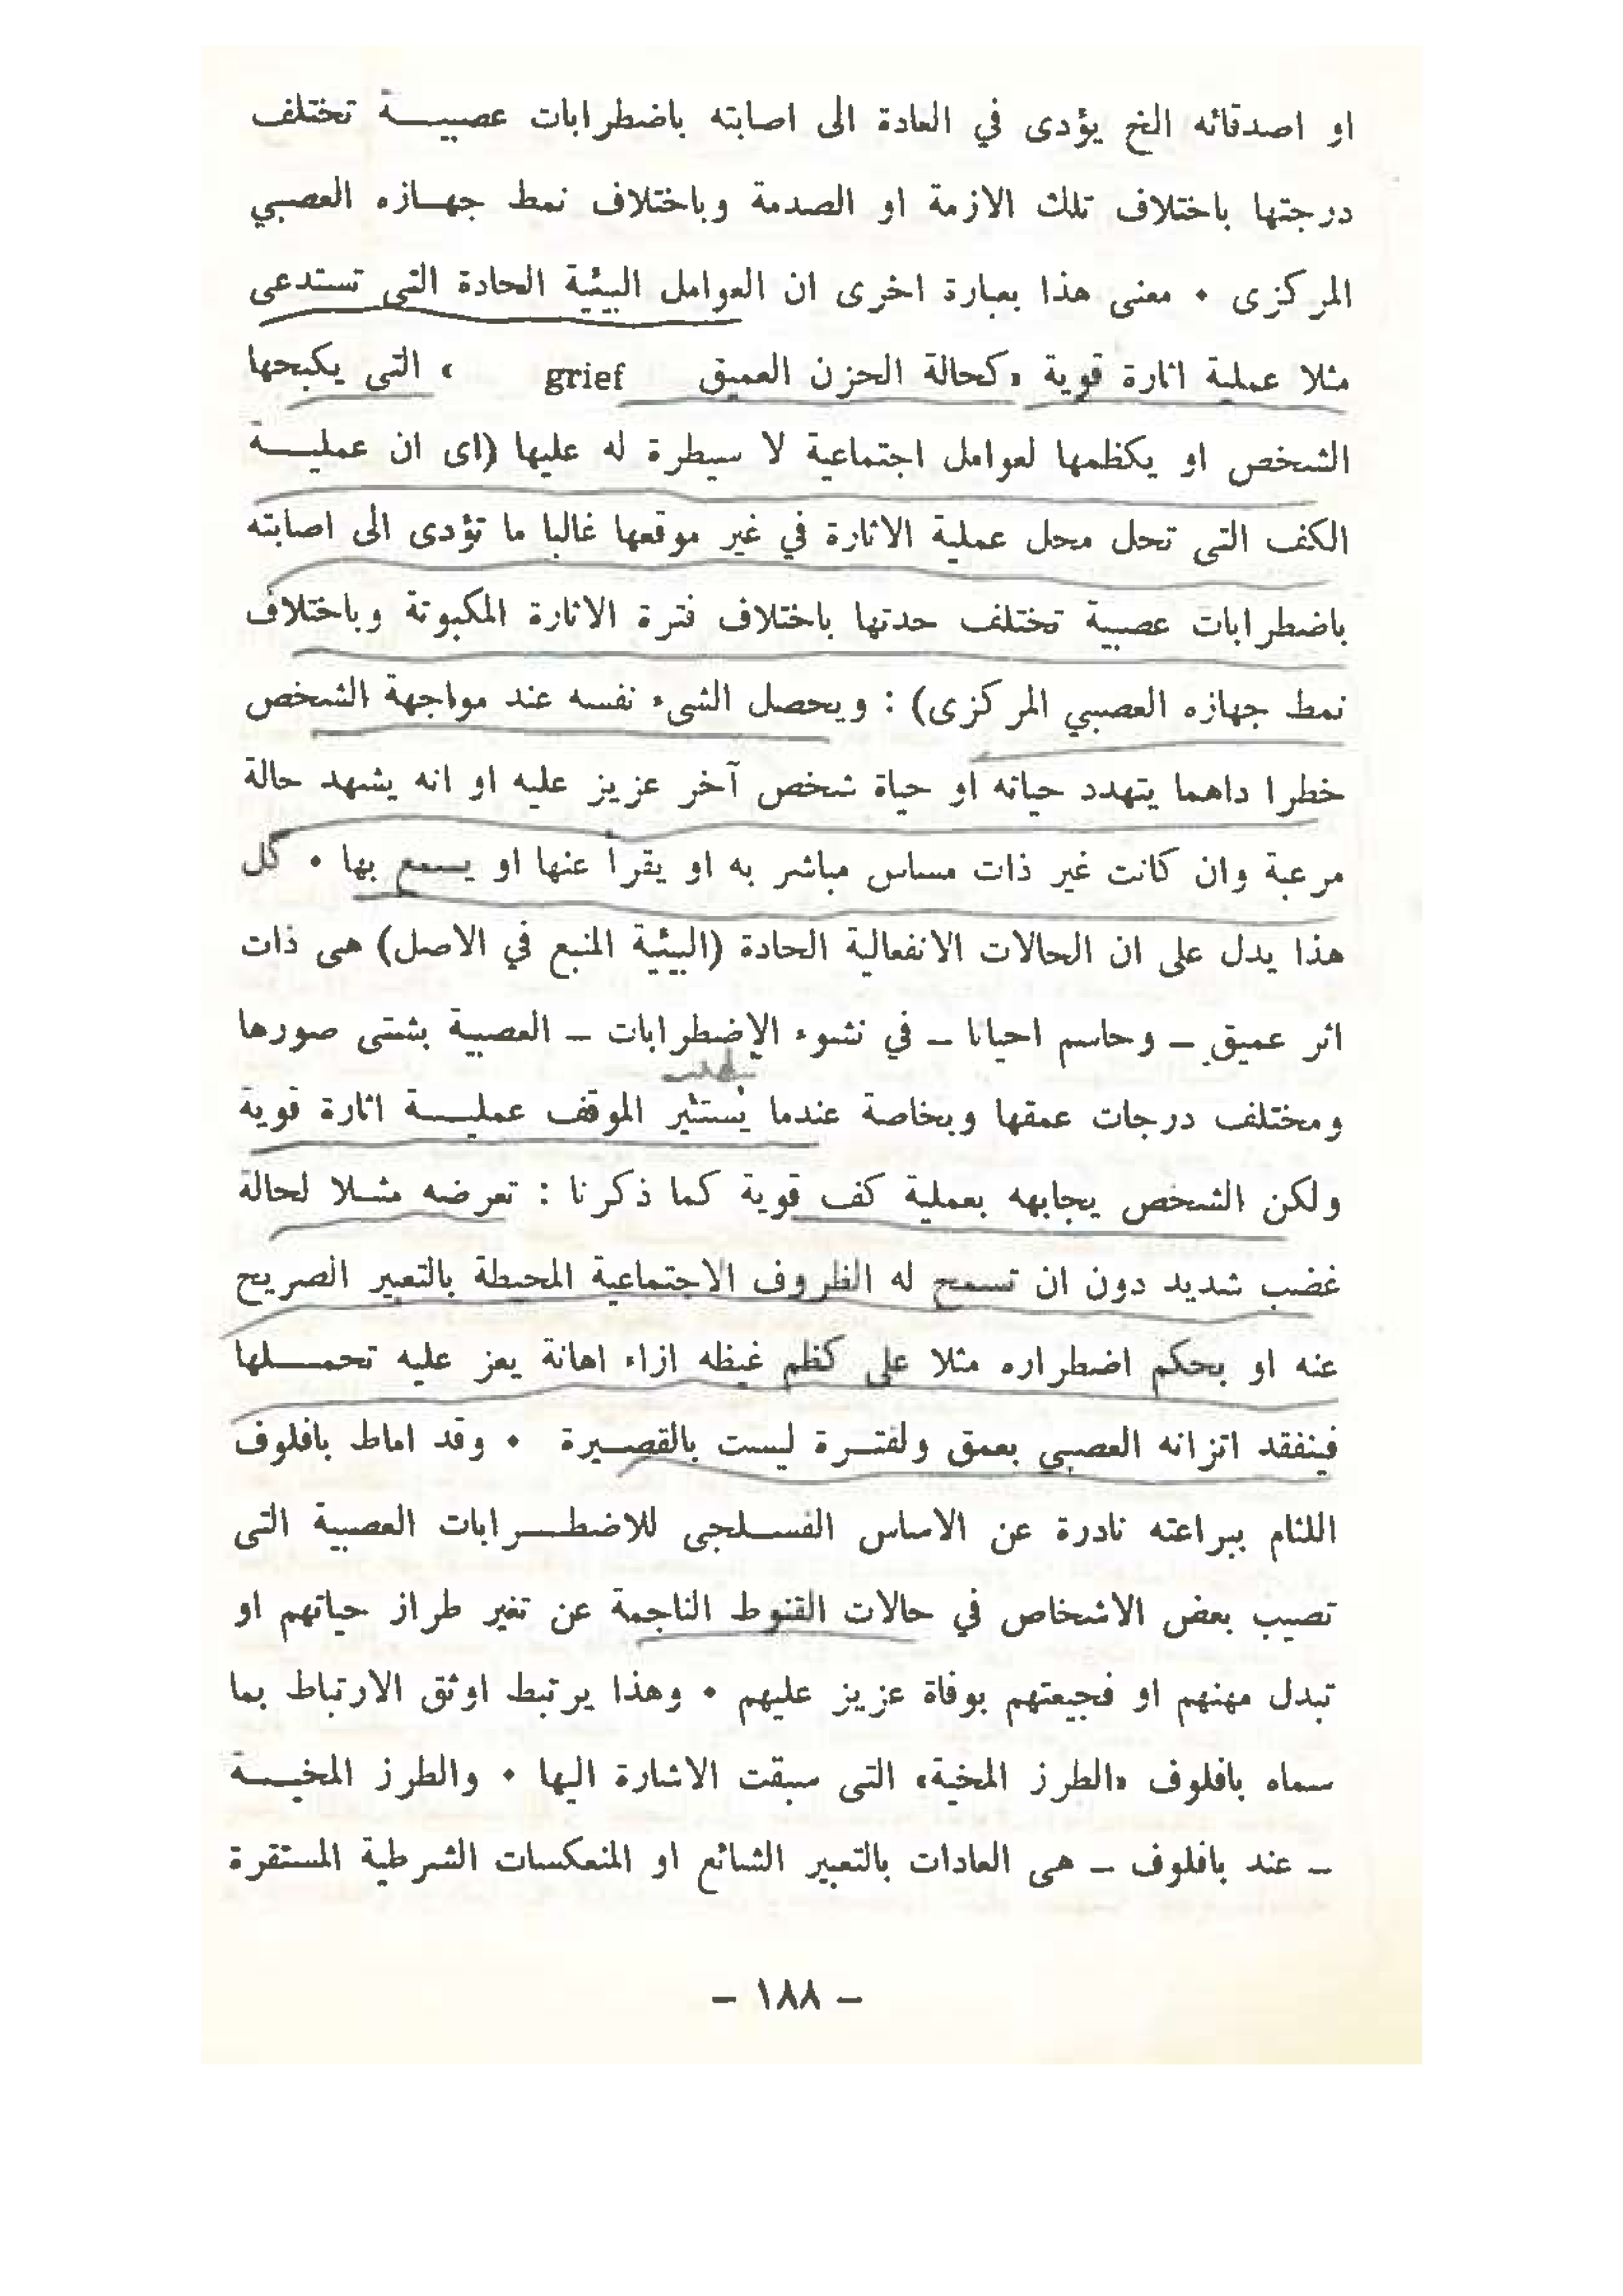 او اصدقائه الخ يؤدى في العادة الى اصابته باضطرابات عصبيـــة تختلف
درجتها باختلاف تلك الازمة او الصدمة وباختلاف نمط جهــازه العصبي
المركزى • معنى هذا بعبارة اخرى ان العوامل البيئية الحادة التى تستدعى
مثلا عملية اثارة قوية «كحالة الحزن العميق grief » التى يكبحها
الشخص او يكظمها لعوامل اجتماعية لا سيطرة له عليها (اى ان عمليـــة
الكف التى تحل محل عملية الاثارة في غير موقعها غالبا ما تؤدى الى اصابته
باضطرابات عصبية تختلف حدتها باختلاف فترة الاثارة المكبوتة وباختلاف
نمط جهازه العصبي المركزى) : ويحصل الشىء نفسه عند مواجهة الشخص
خطرا داهما يتهدد حياته او حياة شخص آخر عزيز عليه او انه يشهد حالة
مرعبة وان كانت غير ذات مساس مباشر به او يقرأ عنها او يسمع بها • كل
هذا يدل على ان الحالات الانفعالية الحادة (البيئية المنبع في الاصل) هى ذات
اثر عميق ـ وحاسم احيانا ـ في نشوء الاضطرابات ـ العصبية بشتى صورها
ومختلف درجات عمقها وبخاصة عندما يستثير الموقف عمليـــة اثارة قوية
ولكن الشخص يجابهه بعملية كف قوية كما ذكرنا : تعرضه مثــلا لحالة
غضب شديد دون ان تسمح له الظروف الاجتماعية المحيطة بالتعبير الصريح
عنه او بحكم اضطراره مثلا على كظم غيظه ازاء اهانة يعز عليه تحمـــلها
فينفقد اتزانه العصبي بعمق ولفتــرة ليست بالقصيرة • وقد اماط بافلوف
اللثام ببراعته نادرة عن الاساس الفســلجى للاضطـــرابات العصبية التى
تصيب بعض الاشخاص في حالات القنوط الناجمة عن تغير طراز حياتهم او
تبدل مهنهم او فجيعتهم بوفاة عزيز عليهم • وهذا يرتبط اوثق الارتباط بما
سماه بافلوف «الطرز المخية» التى سبقت الاشارة اليها • والطرز المخيـــة
ـ عند بافلوف ـ هى العادات بالتعبير الشائع او المنعكسات الشرطية المستقرة
– ١٨٨ –